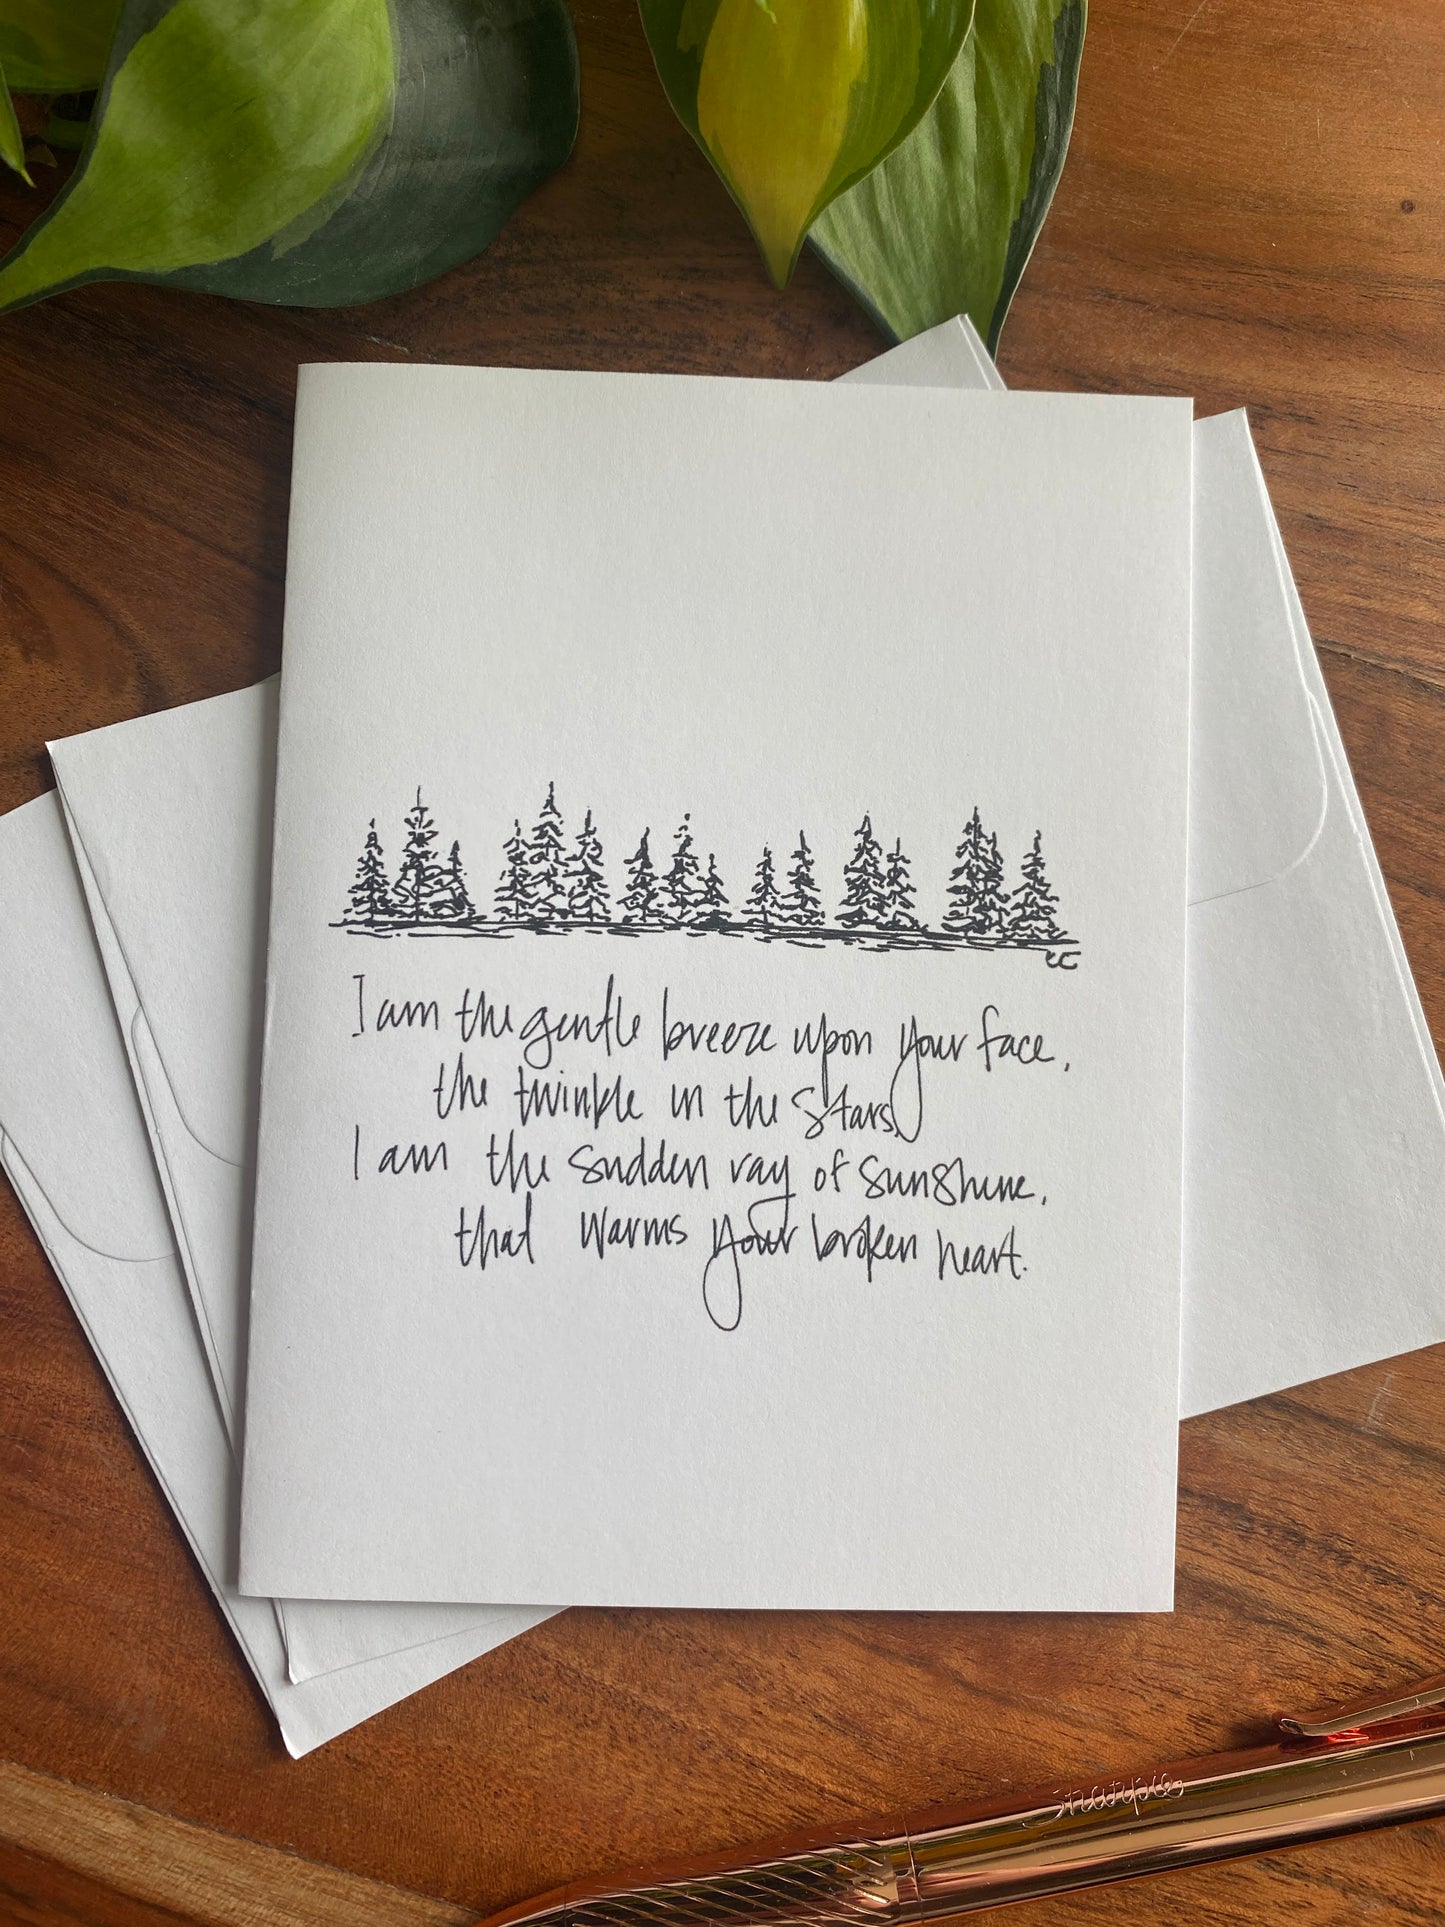 CC
I am the gentle breeze upon your face,
the twinkle in the stars,
I am the sudden ray of sunshine,
that warms your broken heart.
Sharpie